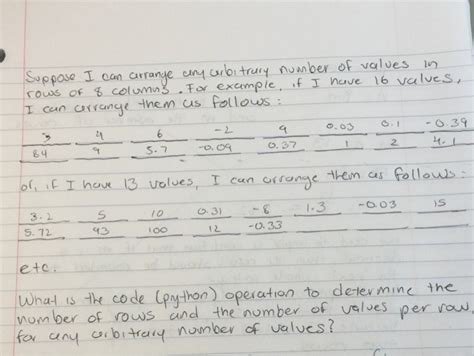 Suppose I can arrange any arbitrary number of values in
rows of 8 columns. For example, if I have 16 values,
I can arrange them as follows:
3 4 6 -2 9 0.03 0.1 -0.39
84 9 5.7 -0.09 0.37 1 2 4.1
or, if I have 13 values, I can arrange them as follows:
3.2 5 10 0.31 -8 1.3 -0.03 15
5.72 43 100 12 -0.33
etc.
What is the code (python) operation to determine the
number of rows and the number of values per row
for any arbitrary number of values?